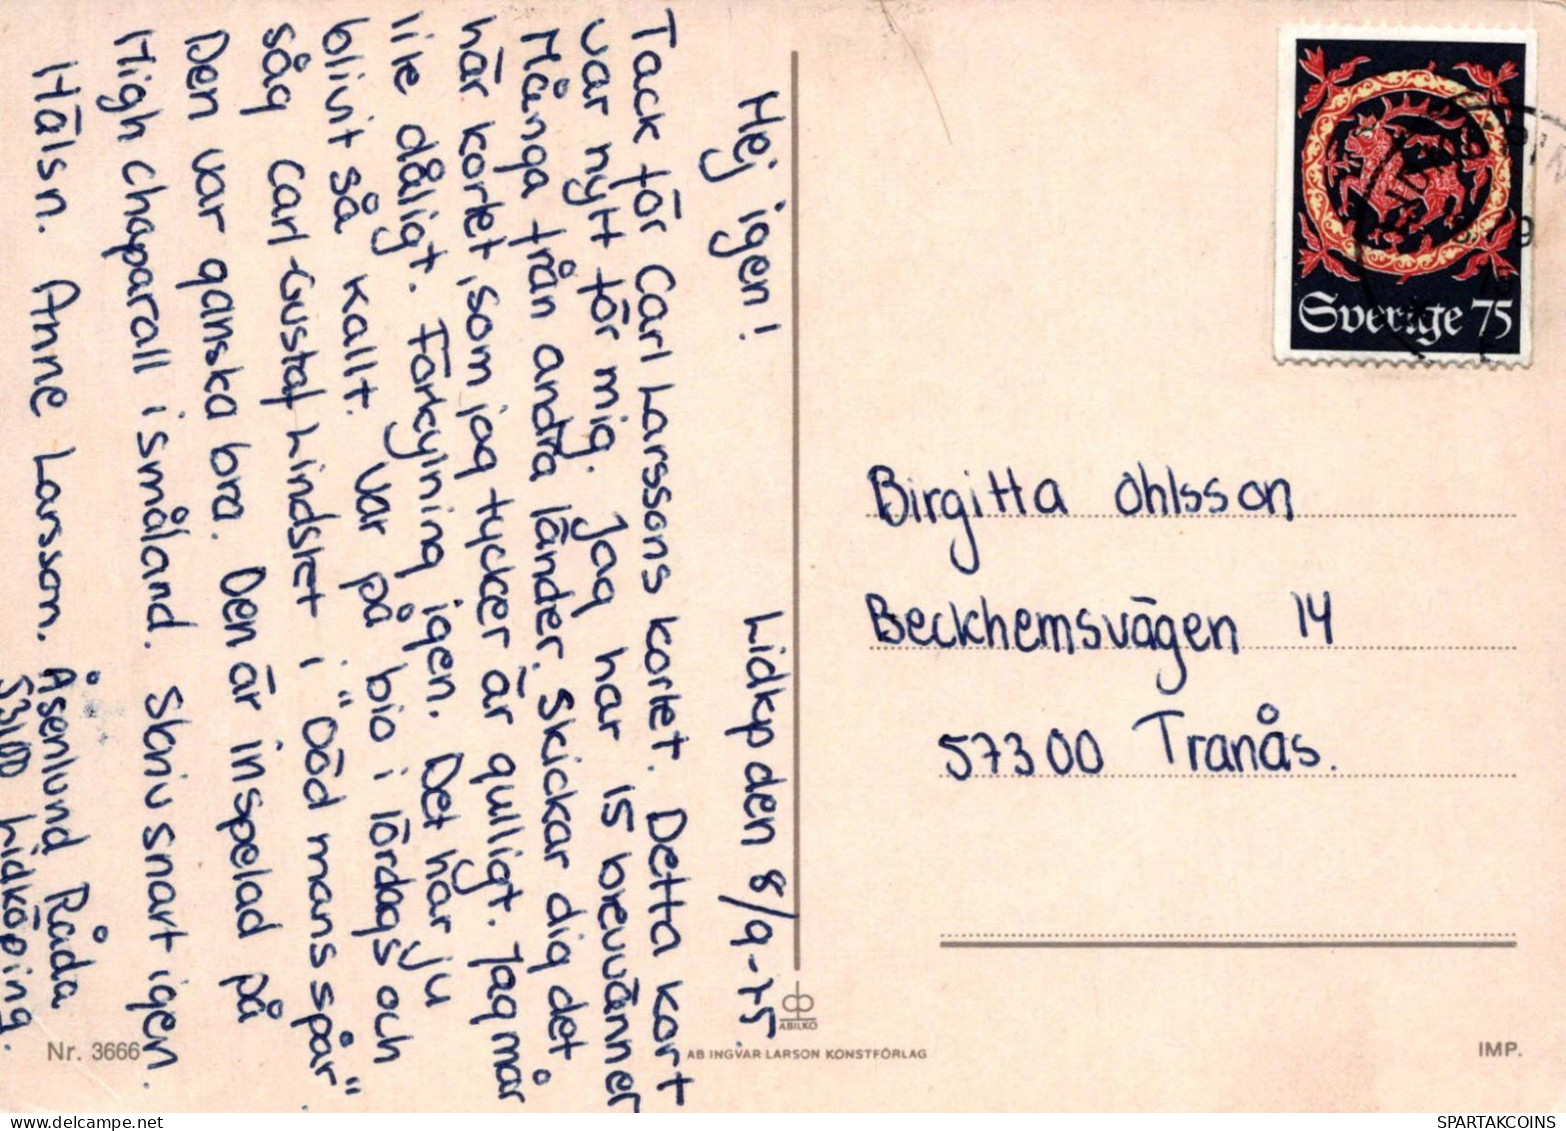 Hej igen!
Lidkp den 8/9-75.
Tack för Carl Larssons kortet. Detta kort
var nytt för mig. Jag har 15 brevvänner
Många från andra länder. Skickar dig det
här kortet, som jag tycker är gulligt. Jag mår
lite dåligt. Förkylning igen. Det har ju
blivit så kallt. Var på bio i lördags och
såg Carl-Gustaf Lindstet i "Död mans spår".
Den var ganska bra. Den är inspelad på
High chaparall i småland. Skriv snart igen.
Hälsn. Anne Larsson. Åsenlund Råda
53100 Lidköping.
Sverige 75
Birgitta Ohlsson
Beckhemsvägen 14
57300 Tranås.
ABILKO
Nr. 3666
AB INGVAR LARSON KONSTFÖRLAG
IMP.
SPARTAKCOINS